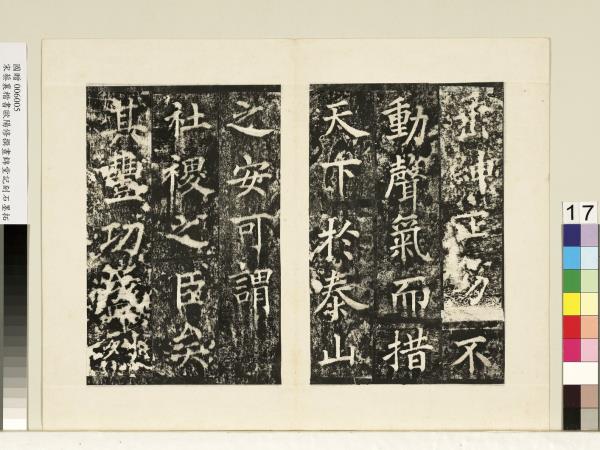 垂紳正笏不
動聲氣而措
天下於泰山
之安可謂
社稷之臣矣
其豐功盛烈
國贈 006005
宋蔡襄楷書歐陽修撰晝錦堂記刻石墨拓
17